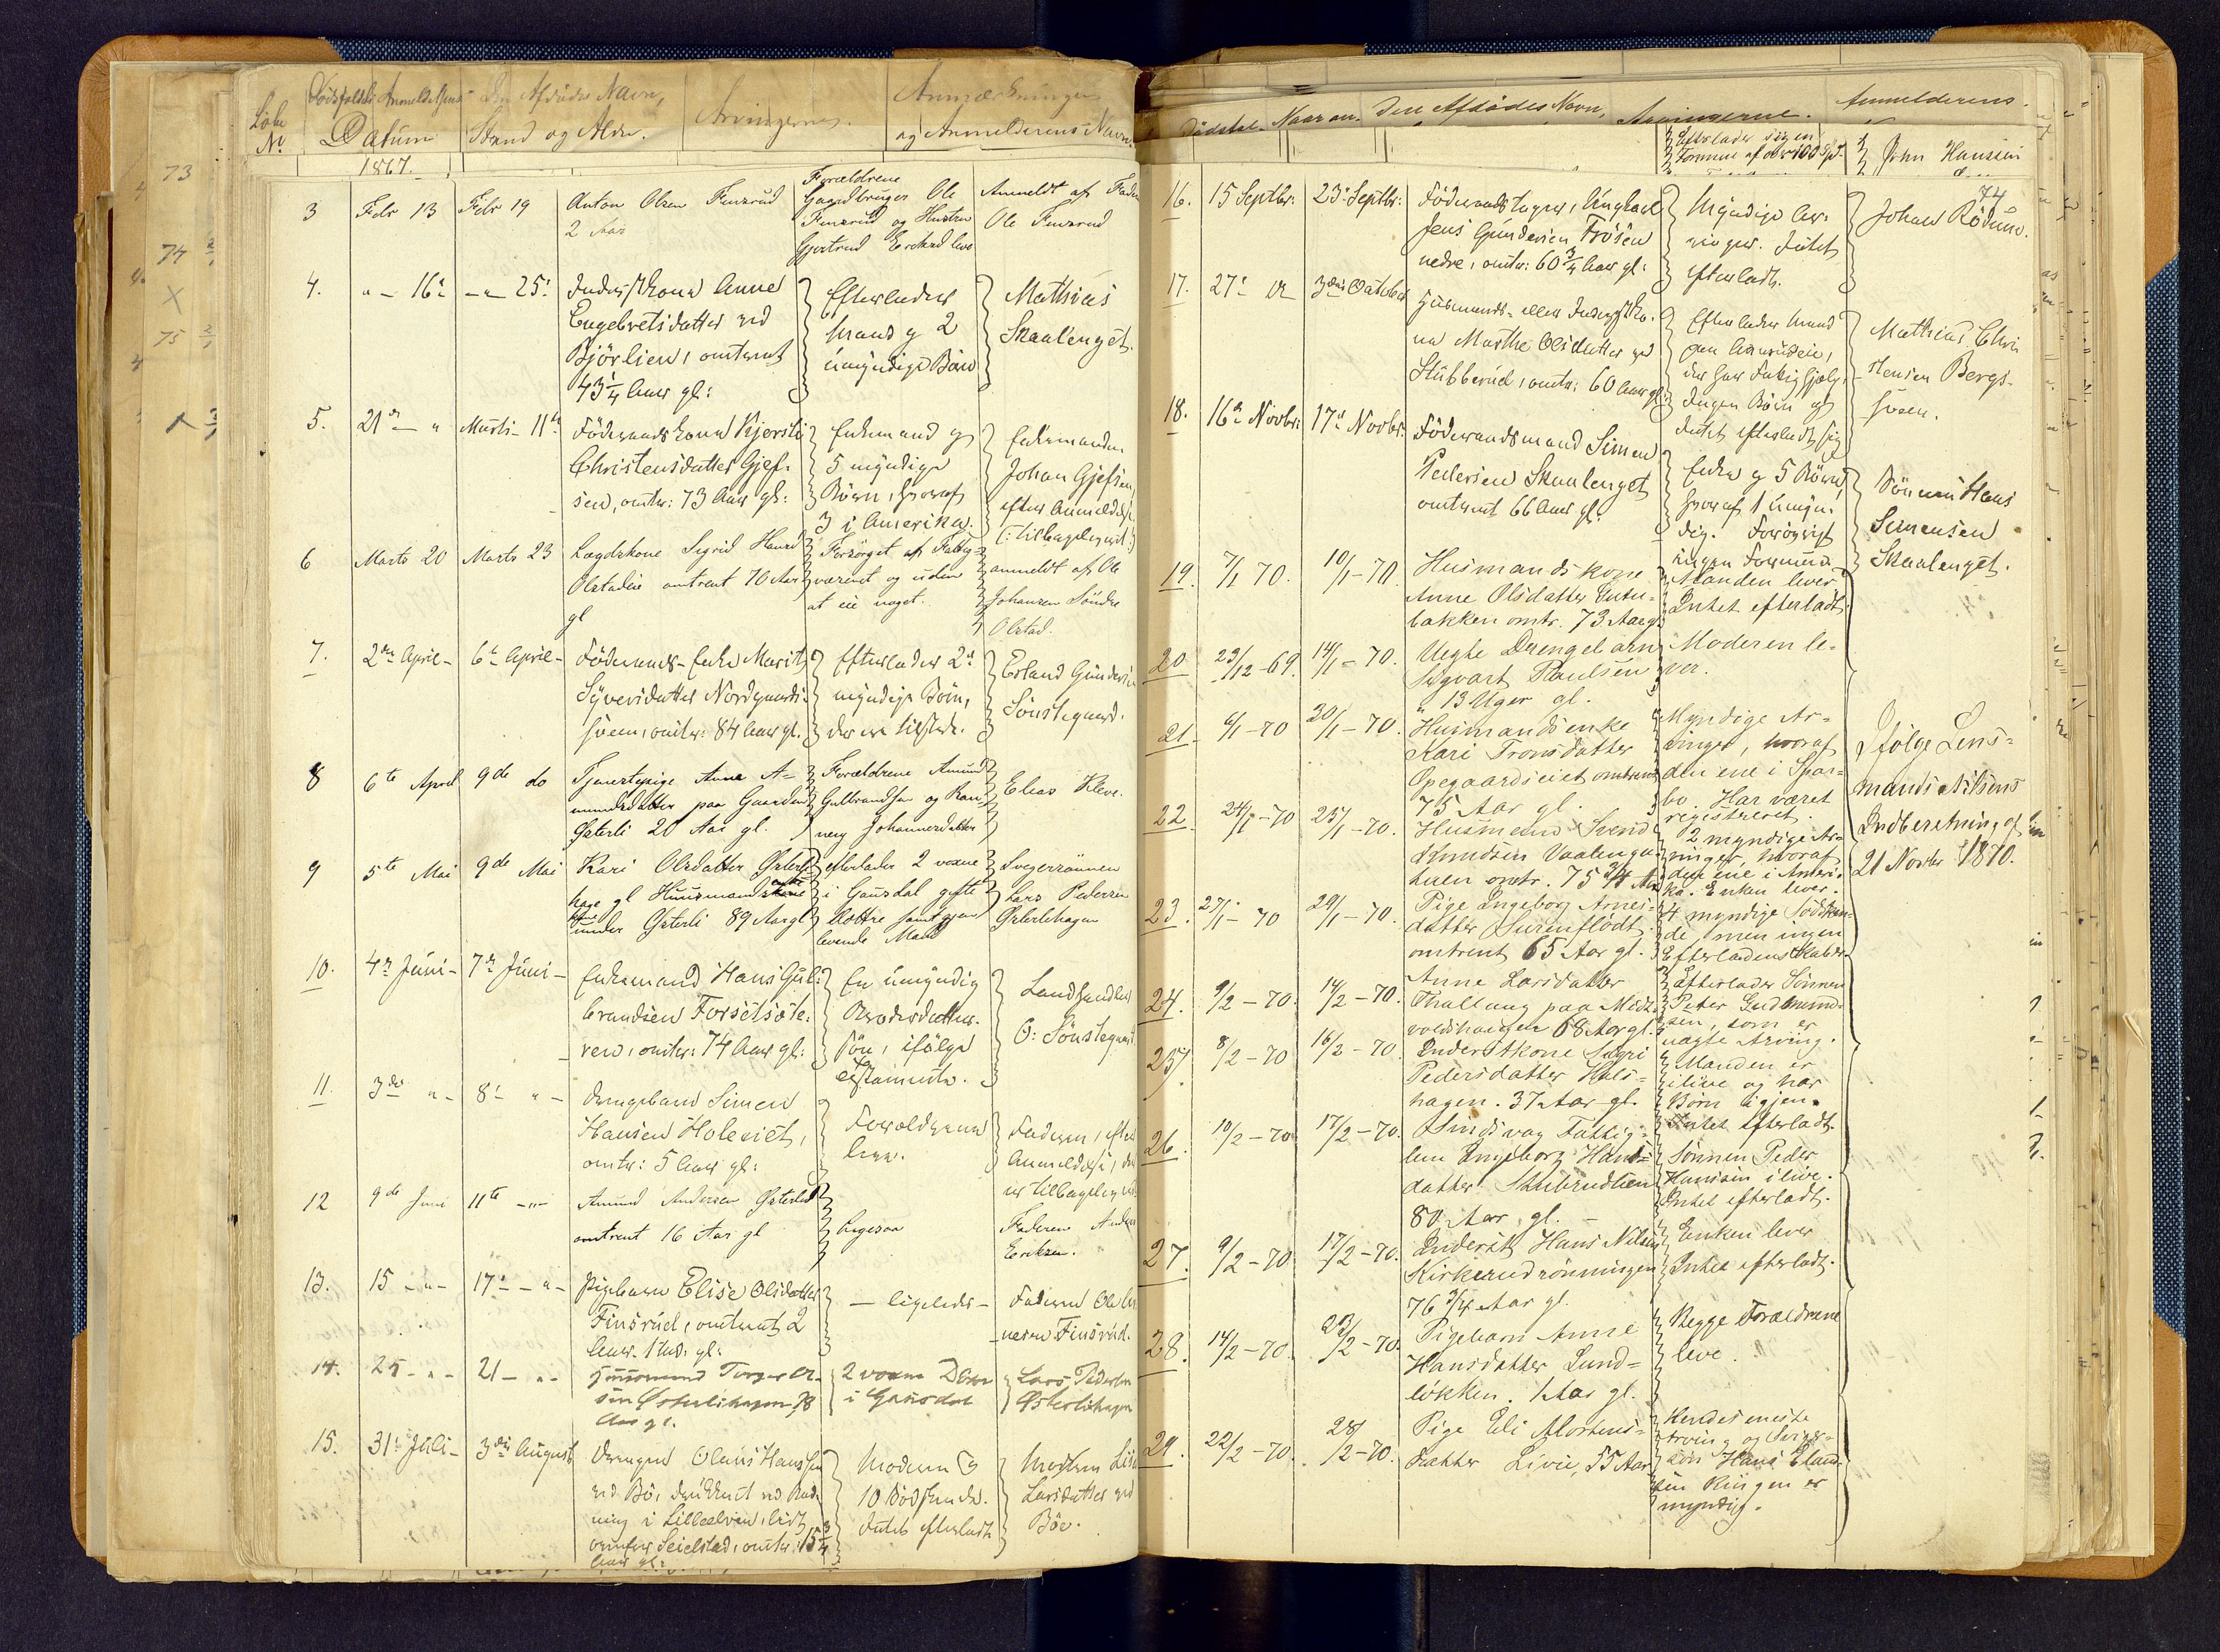 Løbe
N.
Dødsfaldets Anmeldelsens
Datum
Den Afdødes Navn,
Stand og Alder.
Arvingernes.
Anmærkninger
og Anmelderens Navn.
1867.
3
Febr 13
Febr 19
Anton Olsen Finsrud
2 Aar
Forældrene
Gaardbruger Ole
Finsrud og Hustru
Gjertrud
Anmeldt af Fader
Ole Finsrud
4.
" - 16:
- " - 25:
Inderstkone Anne
Engebretsdatter ved
Björlien, omtrent
43 1/4 Aar gl:
Efterlader
Mand og 2
umyndige Börn
Mathias
Skaalenget.
5.
21de - "
Marts - 11te
Föderaadskone Kjersti
Christensdatter Gjef-
sen, omtr: 73 Aar gl:
Enkemand og
5 myndige
Börn, hvoraf
3 i Amerika.
Enkemanden
Johan Gjefsen,
efter Anmeldelse
(: tilbagelevert:)
6
Marts 20
Marts 23
Lægdskone Sigrid Hansd
Olstadeie omtrent 70 Aar
gl
Forsörget af Fattig-
væsenet og uden
at eie noget.
anmeldt af Ole
Johansen Söndre
Olstad.
7.
2den April -
6te April -
Föderaads-Enke Marit
Syversdatter Nordgaards-
sveen, omtr: 84 Aar gl.
Efterlader 2de
myndige Börn,
der ere tilstede.
Erland Gundersen
Sönstegaard.
8
6te April
9de do
Tjenestepige Anne A-
mundsdatter paa Gaarden
Østerli 20 Aar gl.
Forældrene Amund
Gulbrandsen og Ran-
neig Johannesdatter
Elias Kleve.
9
5te Mai
9de Mai
Kari Olsdatter Østerli
hage gl Huusmandskone
under Østerli 89 Aar gl
efterlader 2 voxne
i Gausdal gifte
Døttre samt gjen
levende Mand
Svigersönnen
Lars Pedersen
Østerlihagen
10.
4de Juni -
7de Juni -
Enkemand Hans Gul-
brandsen Forsetsete-
ren, omtr: 74 Aar gl:
En umyndig
Broderdatter-
Sön, ifölge
Testamente.
Landhandler
O: Sönstegaard
11.
3die " -
8: " -
Drengebarn Simen
Hansen Holeeiet,
omtr: 5 Aar gl:
Forældrene
leve.
Faderen, efter
Anmeldelse, der
er tilbageleveret
12
9de Juni
11te - " -
Amund Andersen Østerlid
omtrent 16 Aar gl
Ligesaa
Faderen Anders
Eriksen.
13.
15 - " -
17: - " -
Pigebarn Elise Olsdatter
Finsrud, omtrent 2
Aar. 1 Md: gl:
- ligeledes -
Faderen Ole
Finsrud.
14.
25 - " -
21 - " -
Huusmand Torger
sen Østerlihagen, 78
Aar gl.
2 voxne Döttre
i Gausdal
Lars Pedersen
Østerlihagen
15.
31: Juli -
3die August
Drengen Olaus Hanssen
ved Bö, druknet ved Bad-
ning i Lilleelven, lidt
ovenfor Seielstad, omtr: 15 3/4
Aar gl:
Moderen og
10 Sødskende.
Intet efterladt
Moderen Lise
Larsdatter ved
Böe.
Dödsfal-
Naar an-
Den Afdødes Navn,
Arvingerne.
Anmelderens
Efterlader sig en
Formue af over 100 Spd.
John Hanssen
74
16.
15 Septbr:
23: Septbr:
Föderaadstager, Ungkarl
Jens Gundersen Frösen
nedre, omtr: 60 3/4 Aar gl:
Myndige Ar-
vinger. Intet
efterladt.
Johan Rödum.
17.
27: do
3die October
Huusmands- eller Inderstko-
ne Marthe Olsdatter ved
Stubberud, omtr: 60 Aar gl:
Efterlader Mand
Ingen Börn og
Intet efterladt sig
Mathias Chri
stensen Bergs-
sveen.
18.
16de Novbr:
17de Novbr:
Föderaadsmand Simen
Pedersen Skaalenget
omtrent 66 Aar gl:
Enke og 5 Börn,
hvoraf 1 umyn-
dig. Forövrigt
ingen Formue.
Sönnen Hans
Simensen
Skaalenget.
19.
7/1 70.
10/1 - 70.
Huimandskone
Anne Olsdatter
bakken omtr. 73 Aar gl.
Manden lever
Intet efterladt.
20
23/12 - 69.
14/1 - 70.
Uegte Drengebarn
Sigvart Paulsen
13 Uger gl.
Moderen le-
ver.
21
6/1 - 70
20/1 - 70.
Husmandsenke
Kari Tronsdatter
Opegaardseiet omtrent
75 Aar gl.
Myndige Ar-
vinger, hvoraf
den ene i Spar-
bo. Har været
registreret.
Ifølge Lens-
mands Nilsens
Indberetning af
21 Novbr 1870.
22
24/1 - 70
25/1 - 70.
Husmand Svend
Knudsen Vaalenga-
tuen omtr. 75 3/4 Aar
2 myndige Ar-
vinger, hvoraf
den ene i Ameri-
ka. Enken lever.
23.
27/1 - 70
29/1 - 70.
Pige Ingeborg Arnes-
datter Surenflödt
omtrent 65 Aar gl.
4 myndige Södsken-
de, men ingen
Efterladenskaber.
24.
9/2 - 70.
14/2 - 70.
Anne Larsdatter
Thallaug paa Midt-
voldshaugen 68 Aar gl.
Efterlader Sönnen
Peter Gudmund-
sen, som er
uægte Arving.
25
8/2 - 70
16/2 - 70.
Inderstkone Sigri
Pedersdatter Hols-
hagen. 37 Aar gl.
Manden er
ilive og har
Börn igjen.
Intet efterladt.
26.
10/2 - 70
17/2 - 70.
Sindsvag Fattig-
lem Ingeborg Hans-
datter Stubrudlien
80 Aar gl. -
Sönnen Peder
Hanssen ilive.
Intet efterladt.
27.
9/2 - 70.
17/2 - 70.
Inderst Hans Nilsen
Kirkerudrönningen
76 3/4 Aar gl.
Enken lever
Intet efterladt.
28.
14/2 - 70.
23/2 - 70.
Pigebarn Anne
Hansdatter Lund-
lökken. 1 Aar gl.
Begge Forældrene
leve.
29.
22/2 - 70.
28/2 - 70.
Pige Eli Mortens-
datter Livie, 55 Aar
Hendes eneste
Arving og
sön Hans
Ringen er
myndig.